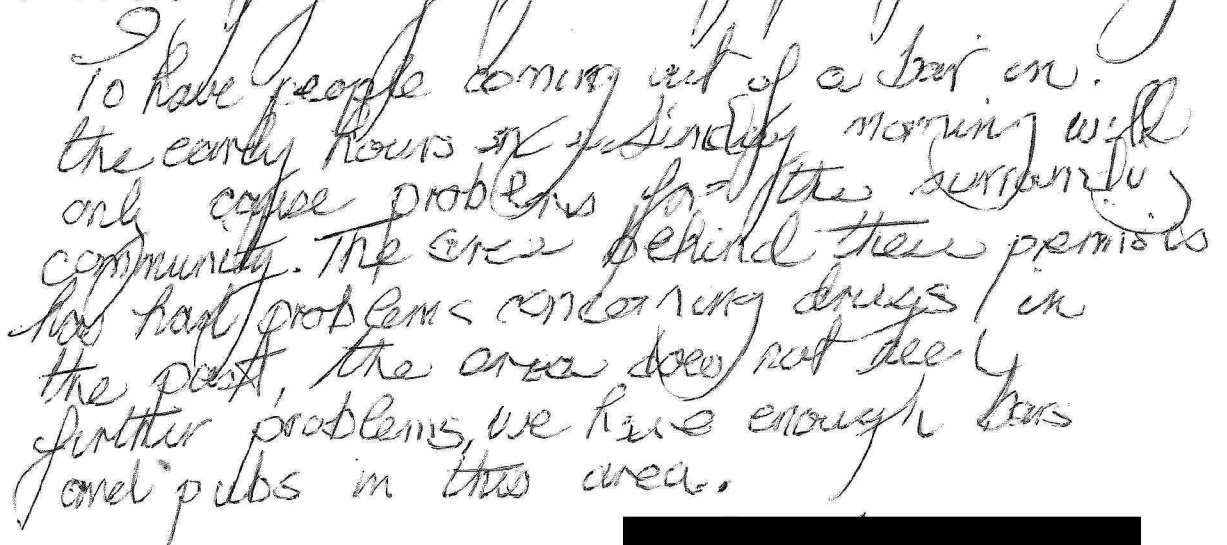 To have people coming out of a bar in
the early hours on a Sunday morning will
only cause problems for the surrounding
community. The area behind these premises
has had problems concerning drugs in
the past, the area does not need
further problems, we have enough bars
and pubs in this area.